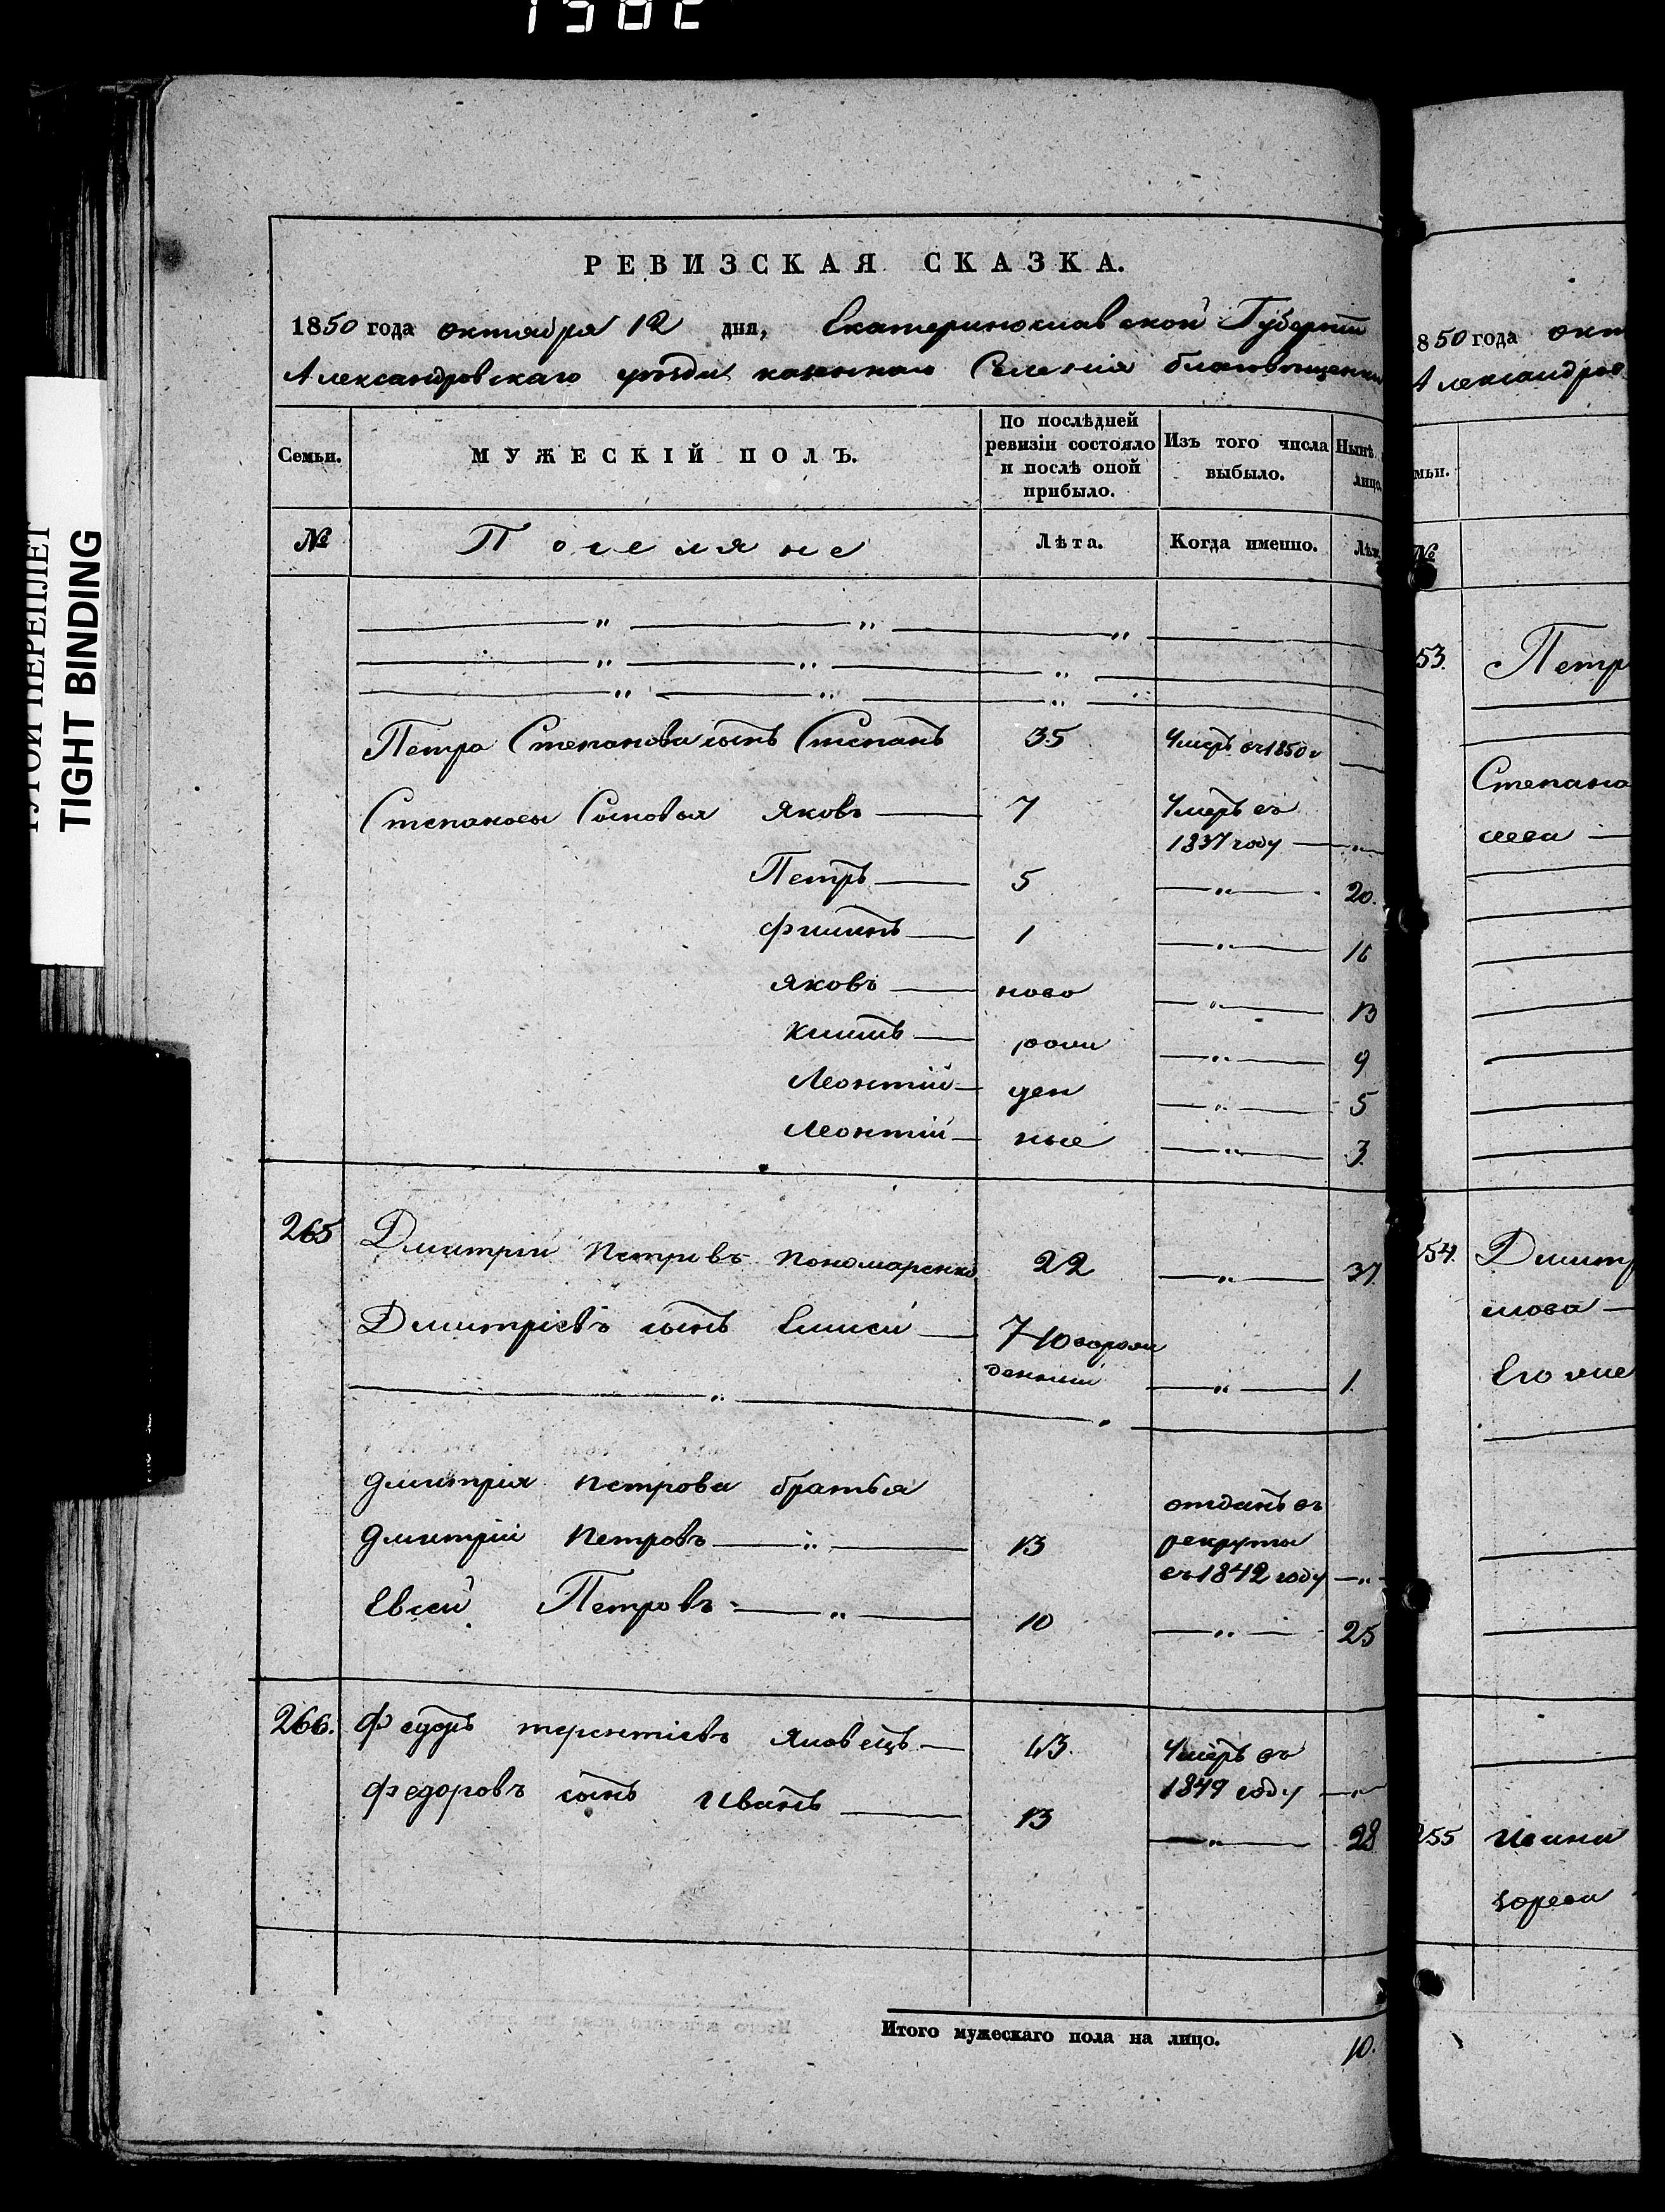 1502
ТУГОЙ ПЕРЕПЛЕТ
TIGHT BINDING
РЕВИЗСКАЯ СКАЗКА.
1850 года октября 12 дня, Екатеринославской Губерніи
Александровскаго уѣзда казеннаго Селенія благовѣщенки
Семьи.
МУЖЕСКІЙ ПОЛЪ.
По послѣдней ревизіи состояло и послѣ оной прибыло.
Изъ того числа выбыло.
Нынѣ лицо
№
Поселяне
Лѣта.
Когда именно.
Лѣт
Петра Степанова сынъ Степанъ 35 Умеръ въ 1850 г
Степановы Сыновья Яковъ 7 Умеръ въ
1837 году "
Петръ 5 " 20.
Филипъ 1 " 16
Яковъ ново " 13
рожи " 9
Леонтій ден " 5
Леонтій ные " 3.
265 Дмитрій Петровъ Пономаренко 22 " 37.
Дмитріевъ сынъ Елисей Новорож
денный " 1.
Дмитрія Петрова братья
отданъ въ
Дмитрій Петровъ " 13 рекруты
въ 1842 году "
Евсей Петровъ " 10 " 25
266. Федоръ терентіевъ Яловецъ 43. Умеръ въ
1849 году "
Федоровъ сынъ Иванъ 13 " 28
Итого мужескаго пола на лицо. 10.
1850 года окт
Александров
мьи.
№
53. Петр
Степана
54. Дмитр
мова
Его же
255 Ивана